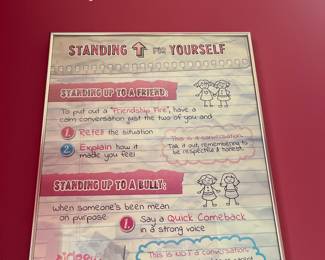 STANDING UP FOR YOURSELF
STANDING UP TO A FRIEND:
To put out a "Friendship Fire", have a
calm conversation just the two of you and
1. Retell the situation
2. Explain how it
made you feel
This is a conversation.
Talk it out, remembering to
be respectful & honest.
STANDING UP TO A BULLY:
when someone's been mean
on purpose
1. Say a Quick Comeback
in a strong voice
This is NOT a conversation.